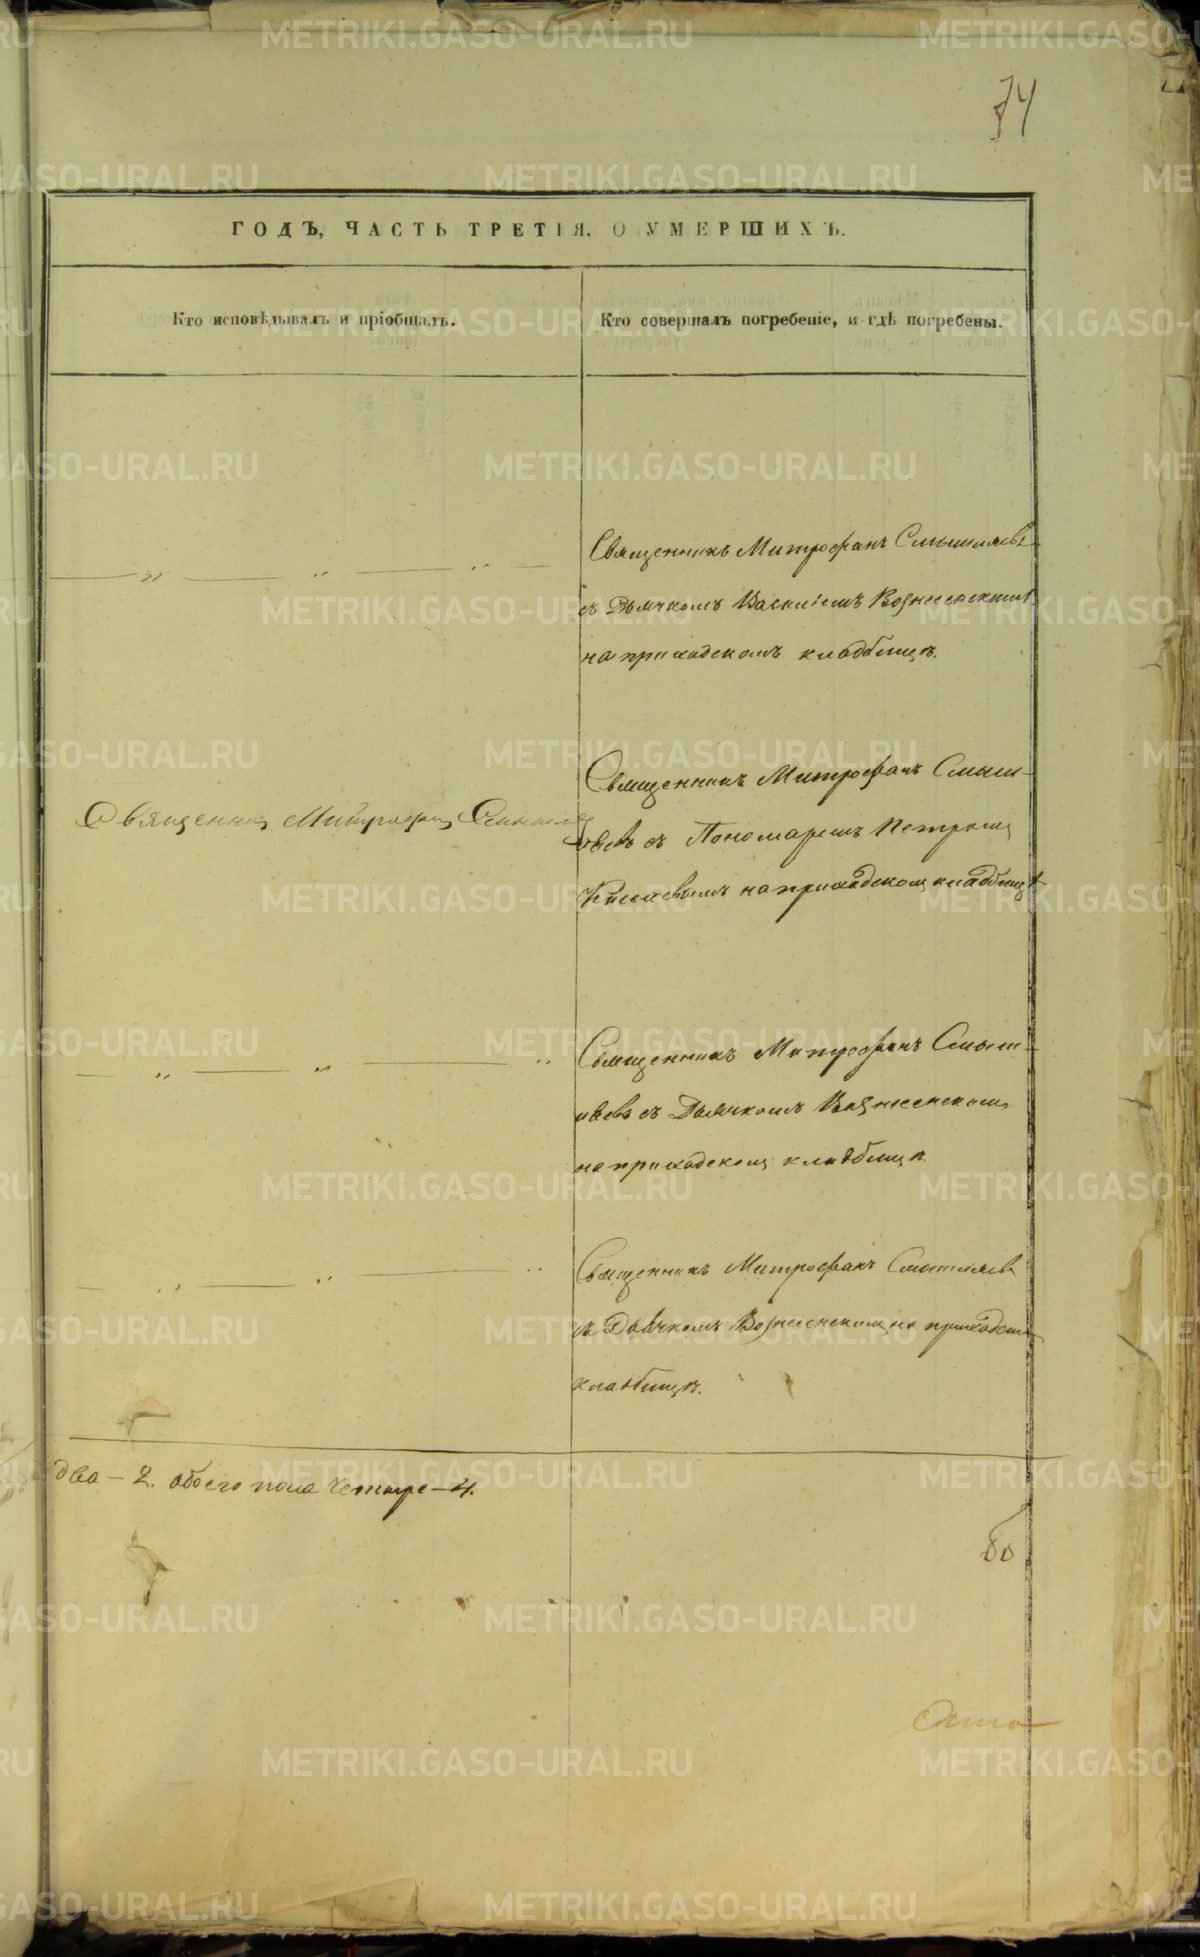 74
ГОДЪ, ЧАСТЬ ТРЕТІЯ, О УМЕРШИХЪ.
Кто исповѣдывалъ и пріобщалъ.
Кто совершалъ погребеніе, и гдѣ погребены.
Священникъ Митрофанъ Смышляевъ
съ Дьячкомъ Василіемъ Вознесенскимъ
на приходскомъ кладбищѣ.
Священникъ Митрофанъ
Священникъ Митрофанъ Смыш-
ляевъ съ Пономаремъ Петромъ
на приходскомъ кладбищѣ
Священникъ Митрофанъ Смыш-
ляевъ съ Дьячкомъ Вознесенскимъ
на приходскомъ кладбищѣ.
Священникъ Митрофанъ Смышляевъ
съ Дьячкомъ Вознесенскимъ на приходском
кладбищѣ.
два – 2. обоего пола четыре – 4.
METRIKI.GASO-URAL.RU